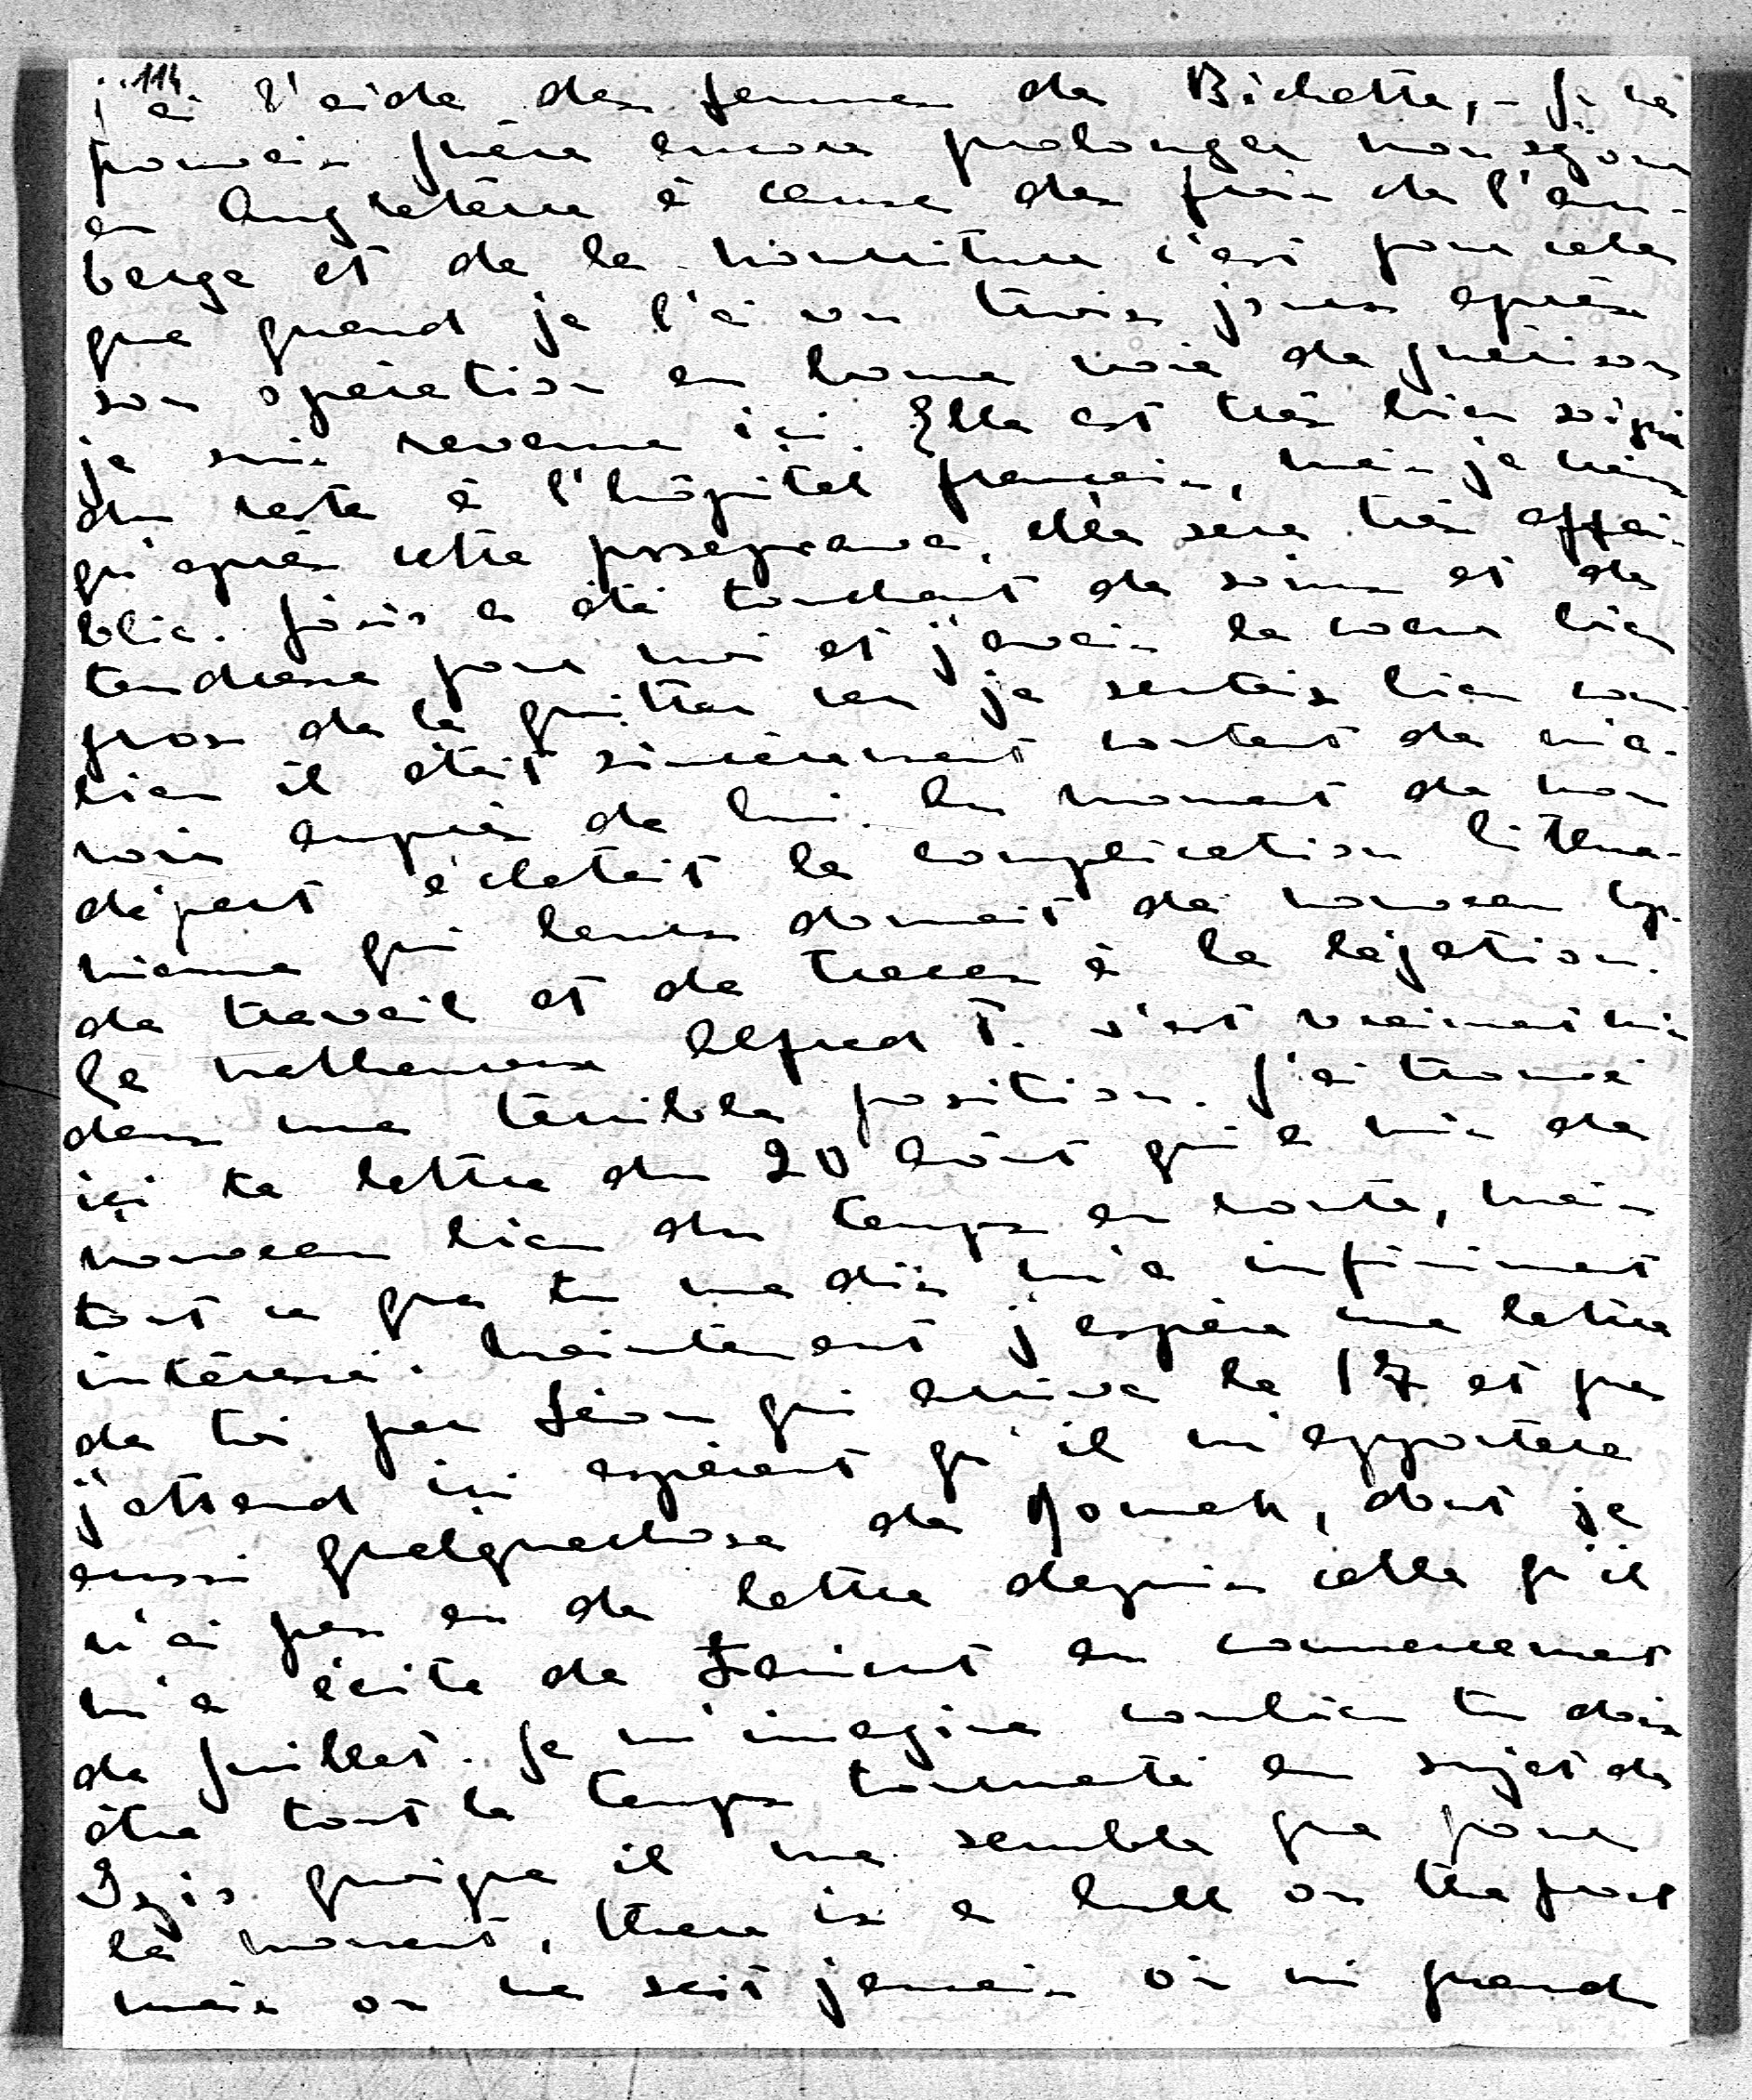 114.
j'ai l'aide des femmes de Bichette, - Je ne
pouvais guère encore prolonger mon séjour
en Angleterre à cause des frais de l'au-
berge et de la nourriture c'est pour cela
que quand je l'ai vu trois jours après
son opération en bonne voie de guérison
je suis revenue içi. Elle est très bien soigné
du reste à l'hôpital français, mais je crains
qu'après cette grosse épreuve, elle sera très affai-
blie. a été touchant de soins et de
tendresse pour moi et j'avais le coeur bien
gros de le quitter car je sentais bien com-
bien il était sincèrement content de m'a-
voir auprès de lui. Au moment de mon
départ éclatait la complication lithua-
nienne qui leurs donnait de nouveau
de travail et de tracas à la légation.
Le malheureux Alfred T. s'est vraiment mis
dans une terrible position. J'ai trouvé
içi ta lettre du 20 Août qui a mis de
nouveau bien du temps en route, mais
tout ce que tu me dis m'a infiniment
intéressé. Maintenant j'espère une lettre
de toi par Léon qui arrive le 17 et que
j'attend içi espérant qu'il m'apportera
aussi quelquechose de , dont je
n'ai pas eu de lettre depuis celle qu'il
m'a écrite de au commencement
de Juillet. Je m'imagine combien tu dois
être tout le temps tourmenté au sujet de
quoique il me semble que pour
le moment, there is a lull on the front
mais on ne sait jamais où ni quand